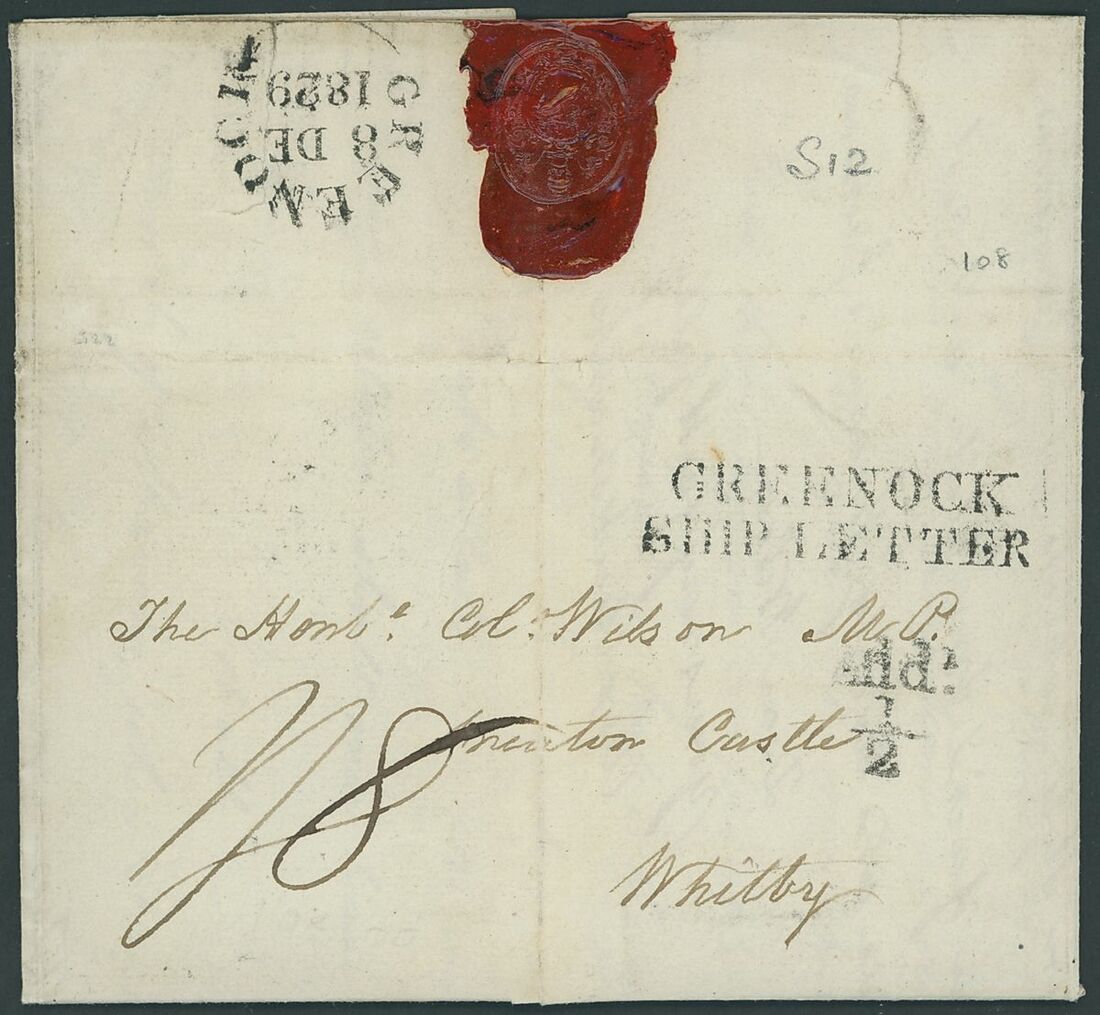 GREENOCK
8 DE
1829
S12
108
522
GREENOCK
SHIP LETTER
The Honble. Col. Wilson M.P.
Add:
1/2
Sneaton Castle
1/8
Whitby